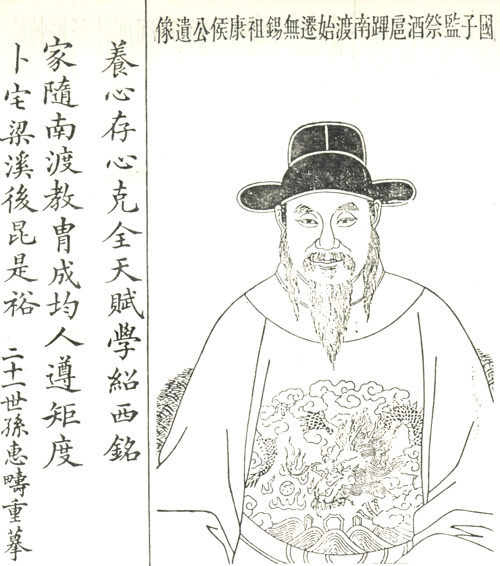 國子監祭酒扈蹕南渡始遷無錫祖康侯公遺像
養心存心克全天賦學紹西銘
家隨南渡教胄成均人遵矩度
卜宅梁溪後昆是裕
二十一世孫惠疇重摹